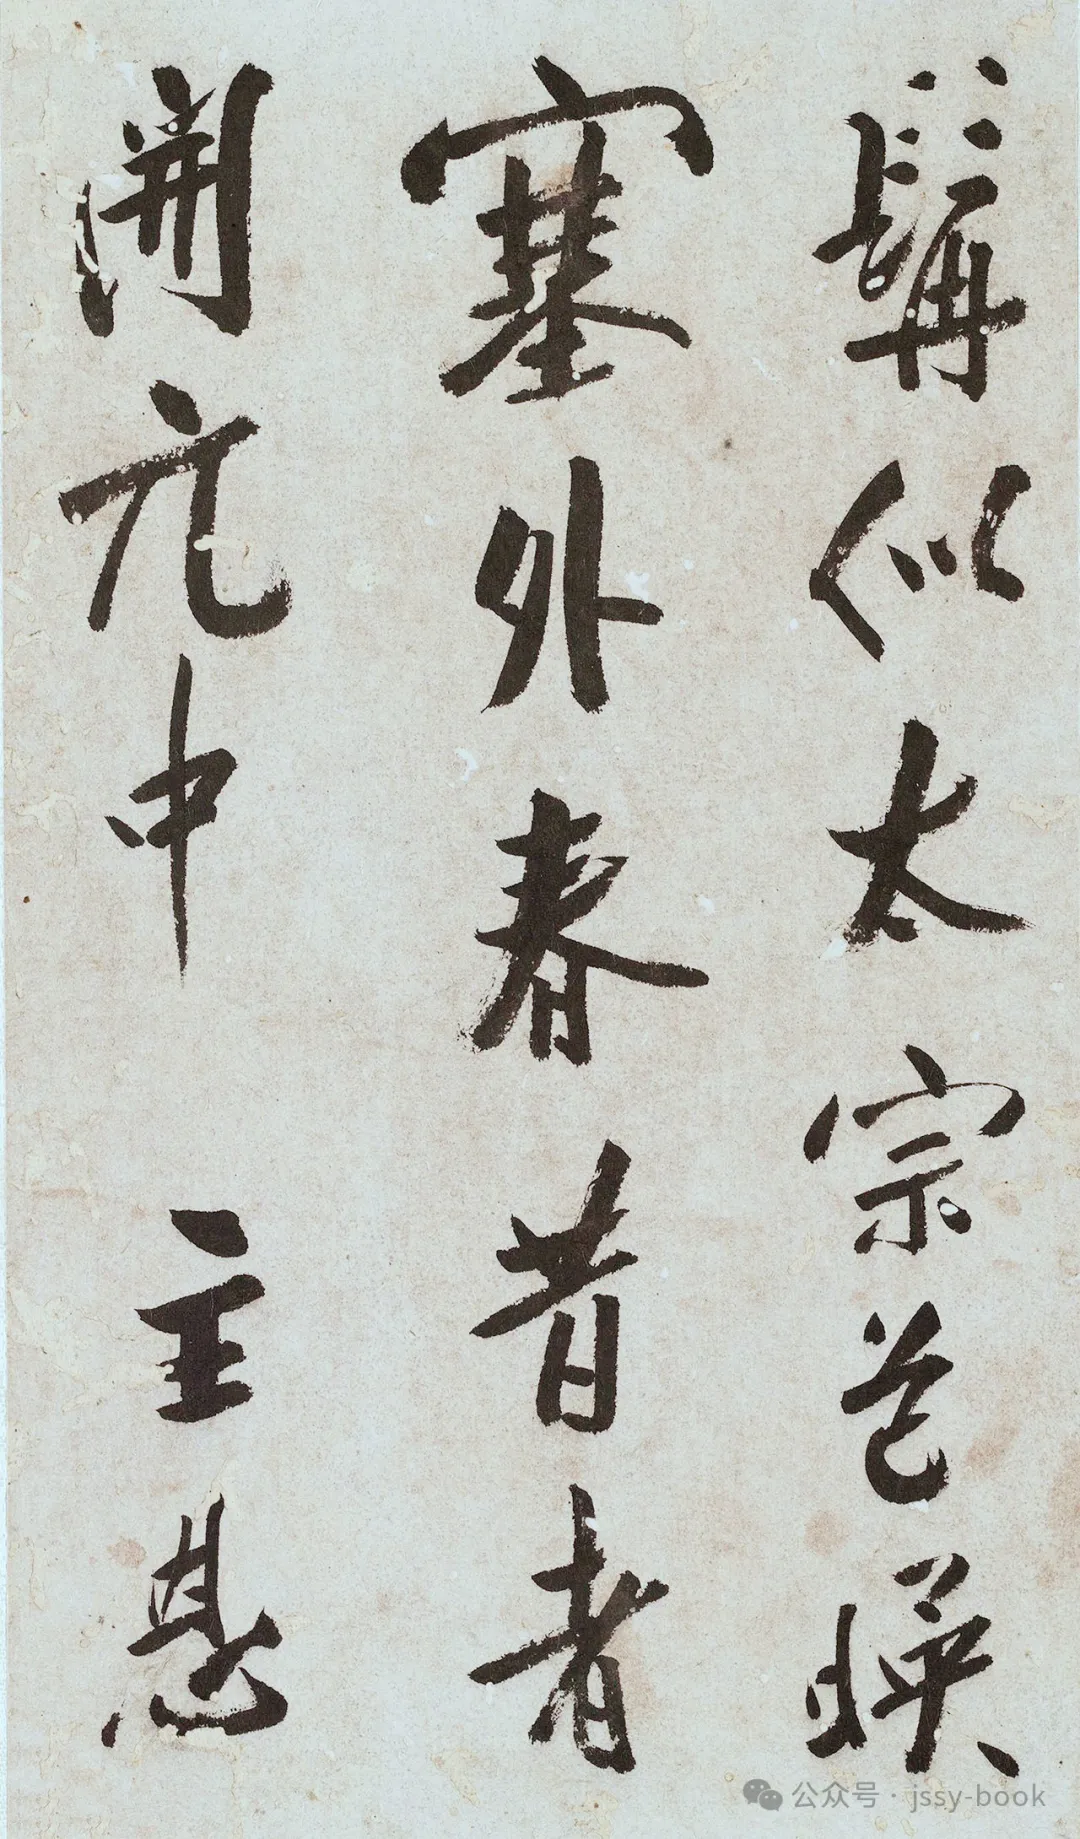 髯似太宗色暎
塞外春昔者
開元中 主恩
公众号 · jssy-book